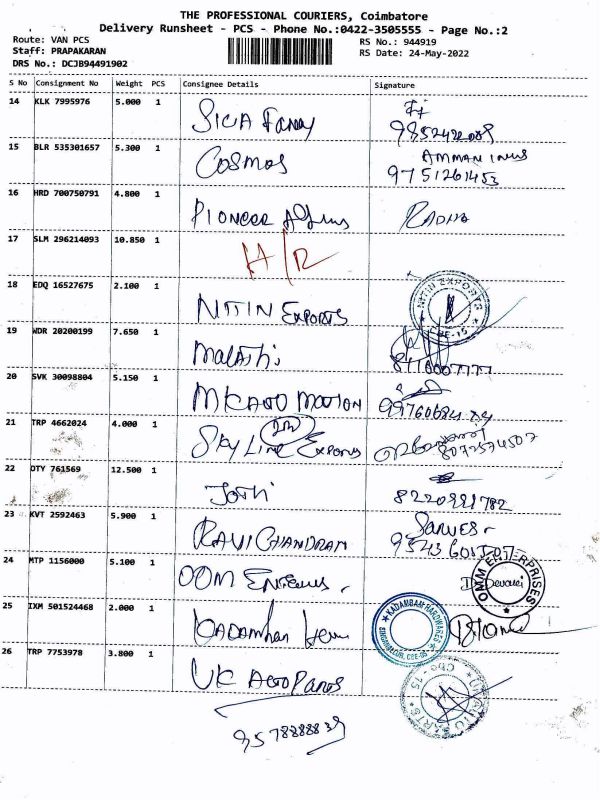 THE PROFESSIONAL COURIERS, Coimbatore
Delivery Runsheet - PCS - Phone No.:0422-3505555 - Page No.:2
Route: VAN PCS
Staff: PRAPAKARAN
DRS No.: DCJB94491902
RS No.: 944919
RS Date: 24-May-2022
S No Consignment No Weight PCS Consignee Details Signature
14 KLK 7995976 5.000 1
15 BLR 535301657 5.300 1 COSMOS AMMAN
9751261453
16 HRD 700750791 4.800 1 PIONEER RADHA
17 SLM 296214093 10.850 1 H/R
18 EDQ 16527675 2.100 1 NITIN EXPORTS NITIN EXPORTS CBE-15
19 WDR 20200199 7.650 1 Malathi
20 SVK 30098804 5.150 1
21 TRP 4662024 4.000 1 SKY LINE EXPORTS
8072574507
22 OTY 761569 12.500 1 Jothi 8220991782
23 KVT 2592463 5.900 1 RAVICHANDRAN
24 MTP 1156000 5.100 1 OOM OMM ENTERPRISES Devaraj
25 IXM 501524468 2.000 1 Kadamban KADAMBAM HARDWARES
26 TRP 7753978 3.800 1 UK UK AUTO PARTS CBE-15
9578888839